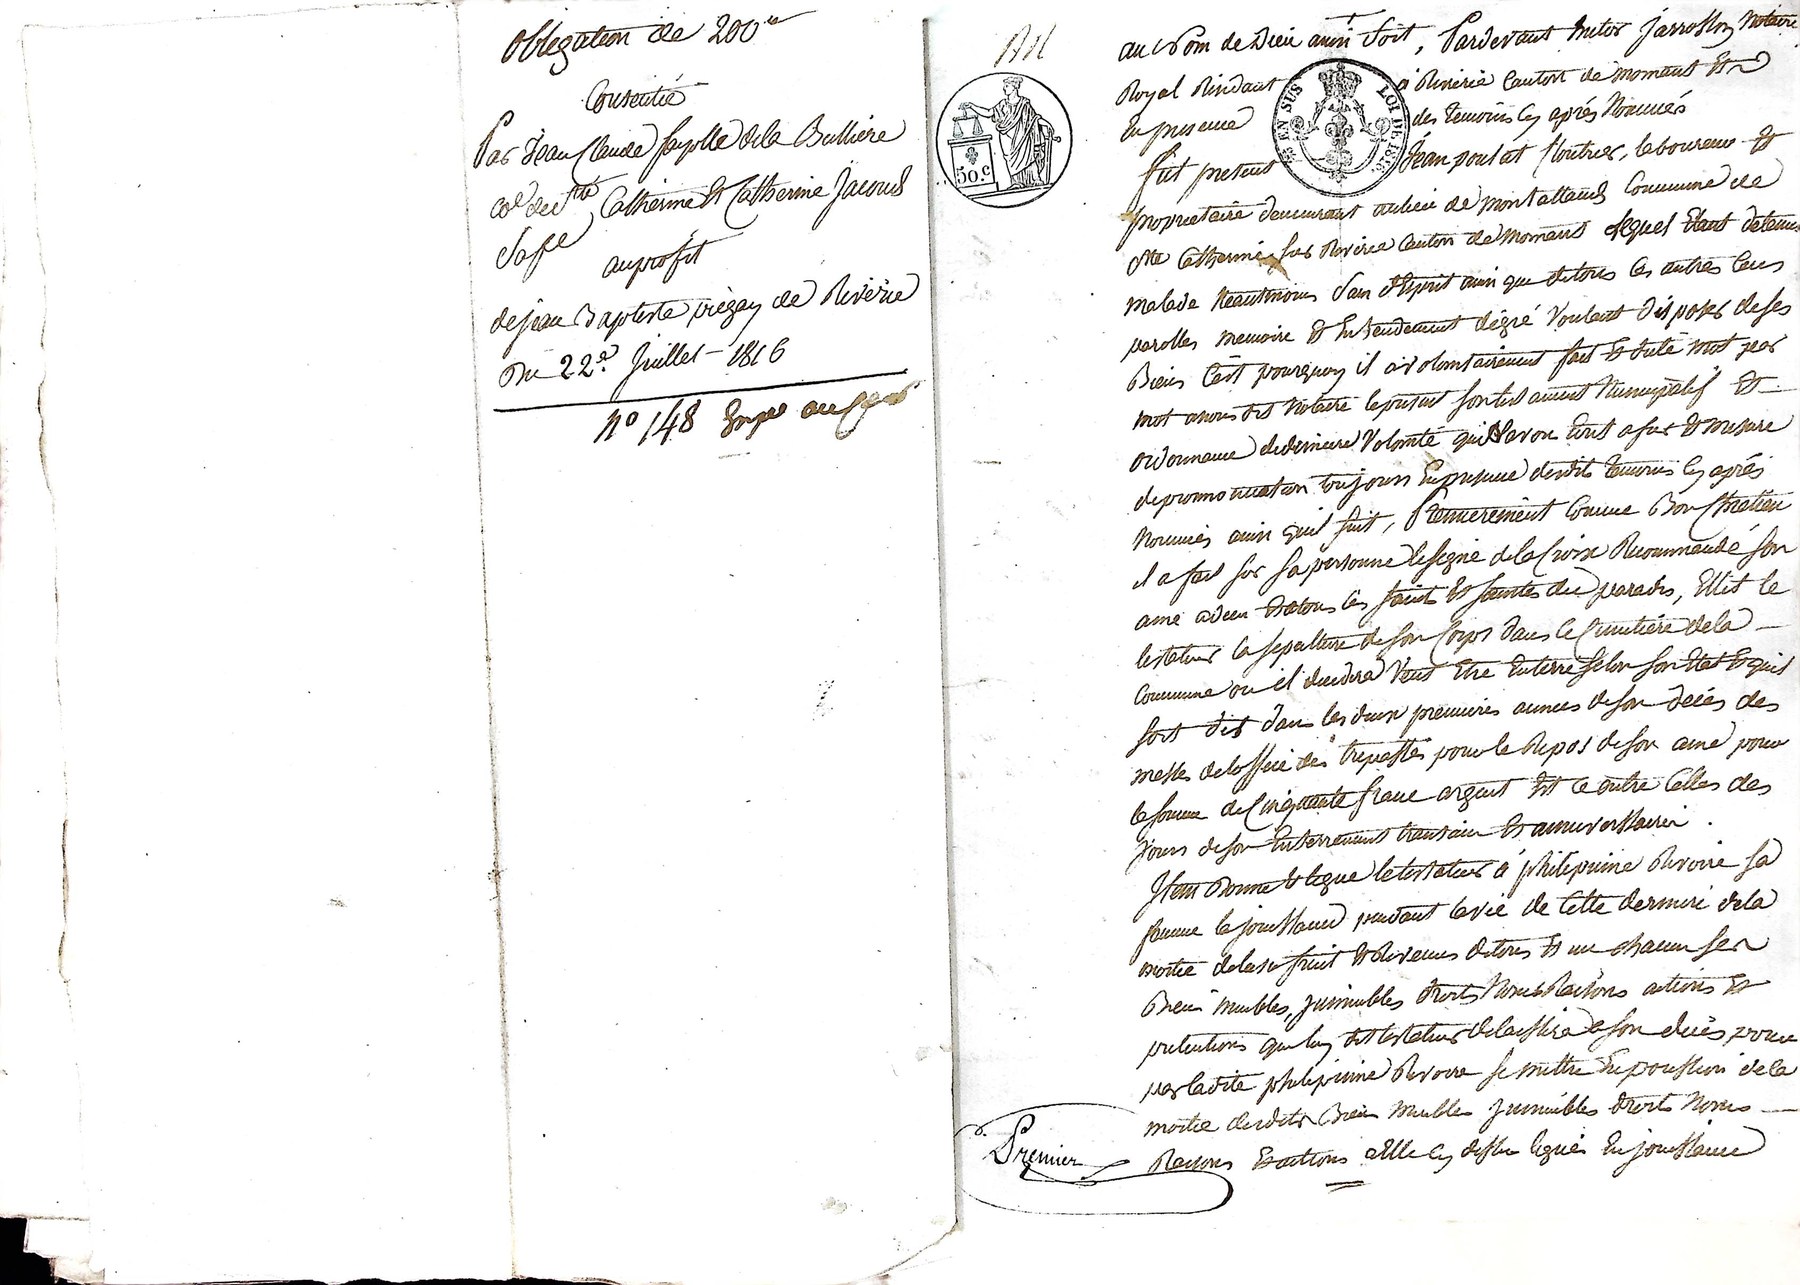 obligation de 200 ##
Consentie
Par Jean Claude fayolle de la Bullière
col de Ste Catherine Et Catherine Jacoud
Safe
au profit
de jean Baptiste viegay de Riverie
Du 22e. Juillet 1816
no 148 Enre au
50.c
EN SUS LOI DE 1816
au Nom de Dieu ainsi soit, Pardevant Jarrosson Notaire
Royal Résidant à Riverie Canton de mornant Et
En présence des temoins Cy après Nommés
fut présent Jean poulat floutrier, laboureur Et
propriétaire demeurant au lieu de montalland Commune de
Ste Catherine sur Riverie Canton de mornant lequel Etant detenu
malade Neautmoins sain d'Esprit ainsi que de tous ces autres sens
parolles memoire Et Entendement de gré Voulant disposer de ses
Biens C'est pourquoy il a volontairement fait Et dicté mot par
mot a nous dit Notaire le present son testament Nuncupatif Et
ordonnance de derniere Volonté qu'il avon Ecrit a fur Et mesure
de prononciation toujours En presence desdits temoins Cy après
Nommés ainsi qu'il suit, Premierement Comme Bon Chrétien
il a fait sur sa personne le signe de la Croix Recommandé son
ame a dieu Et a tous les saints Et saintes du paradis, Ellit le
testateur la sepulture de son Corps dans le Cimetière de la
Commune ou il decedera Veut Etre Enterré selon son Etat Et quil
soit dit dans les deux premieres années de son décès des
messes de loffice des trepassés pour le Repos de son ame pour
la somme de Cinquante franc argent Et ce outre Celles des
jours de son Enterrement trantain Et anniverssaire.
Item Donne Et legue le testateur à philepinne Rivoire sa
femme la jouissance pendant la vie de Cette derniere de la
moitié de lusufruit Et Revenus de tous Et un chacun ses
Biens meubles, jmmeubles droits Noms Raisons actions Et
pretentions que luy dit testateur delaissera a son décès pour
par la dite philepinne Rivoire se mettre En possession de la
moitié desdits Biens meubles jmmeubles droits Noms
Raisons Et actions a Elle cy dessus legués En jouissance
Premier